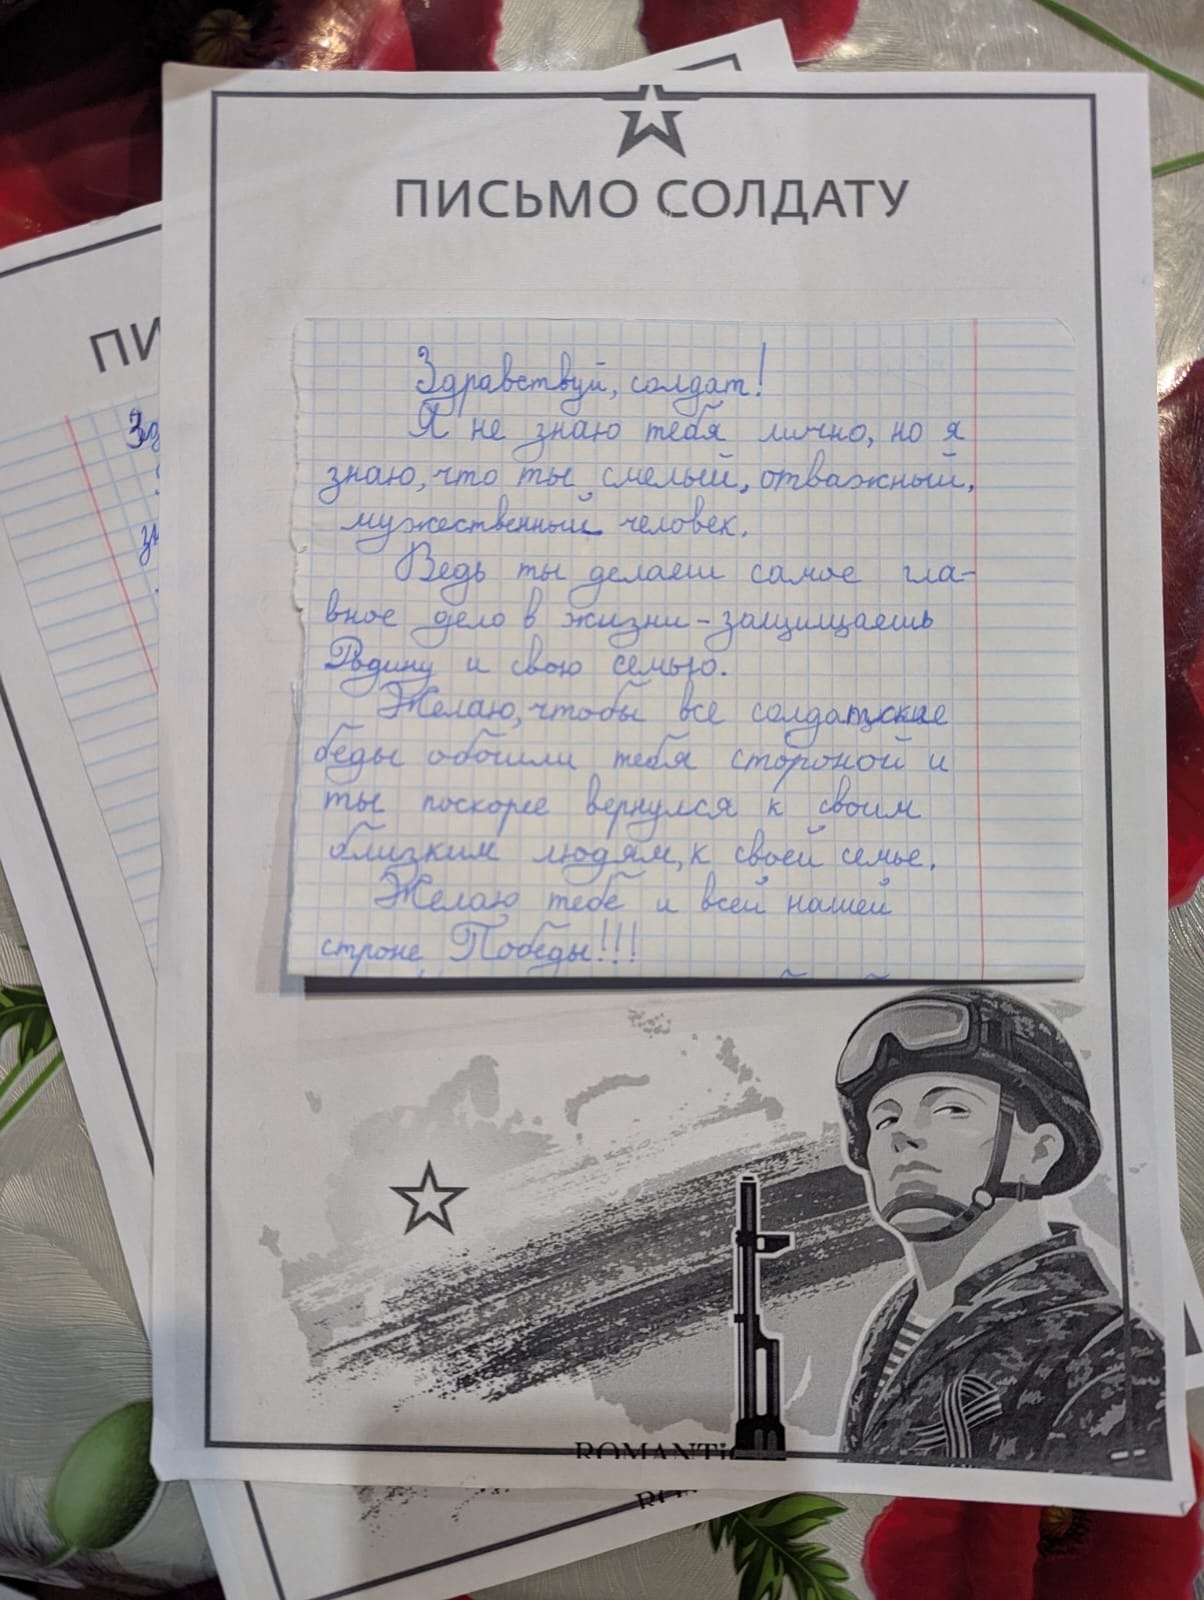 ПИСЬМО СОЛДАТУ
Здравствуй, солдат!
Я не знаю тебя лично, но я
знаю, что ты смелый, отважный,
мужественный человек.
Ведь ты делаеш самое гла-
вное дело в жизни - защищаешь
Родину и свою семью.
Желаю, чтобы все солдатские
беды обошли тебя стороной и
ты поскорее вернулся к своим
близким людям, к своей семье.
Желаю тебе и всей нашей
строне Победы!!!
ПИ
Зд
зн
ROMANTI